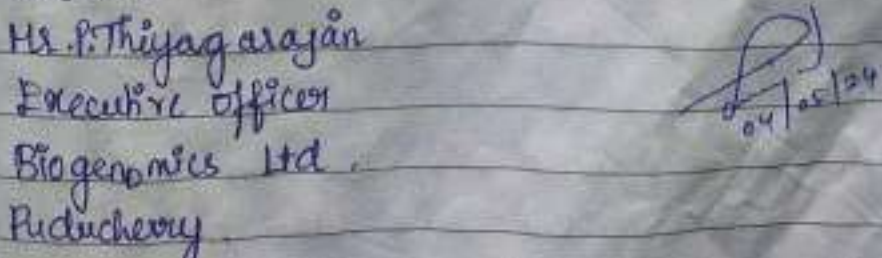 Mr. P. Thiyagarajan
Executive Officer
Biogenomics Ltd.
Puducherry
04/05/24